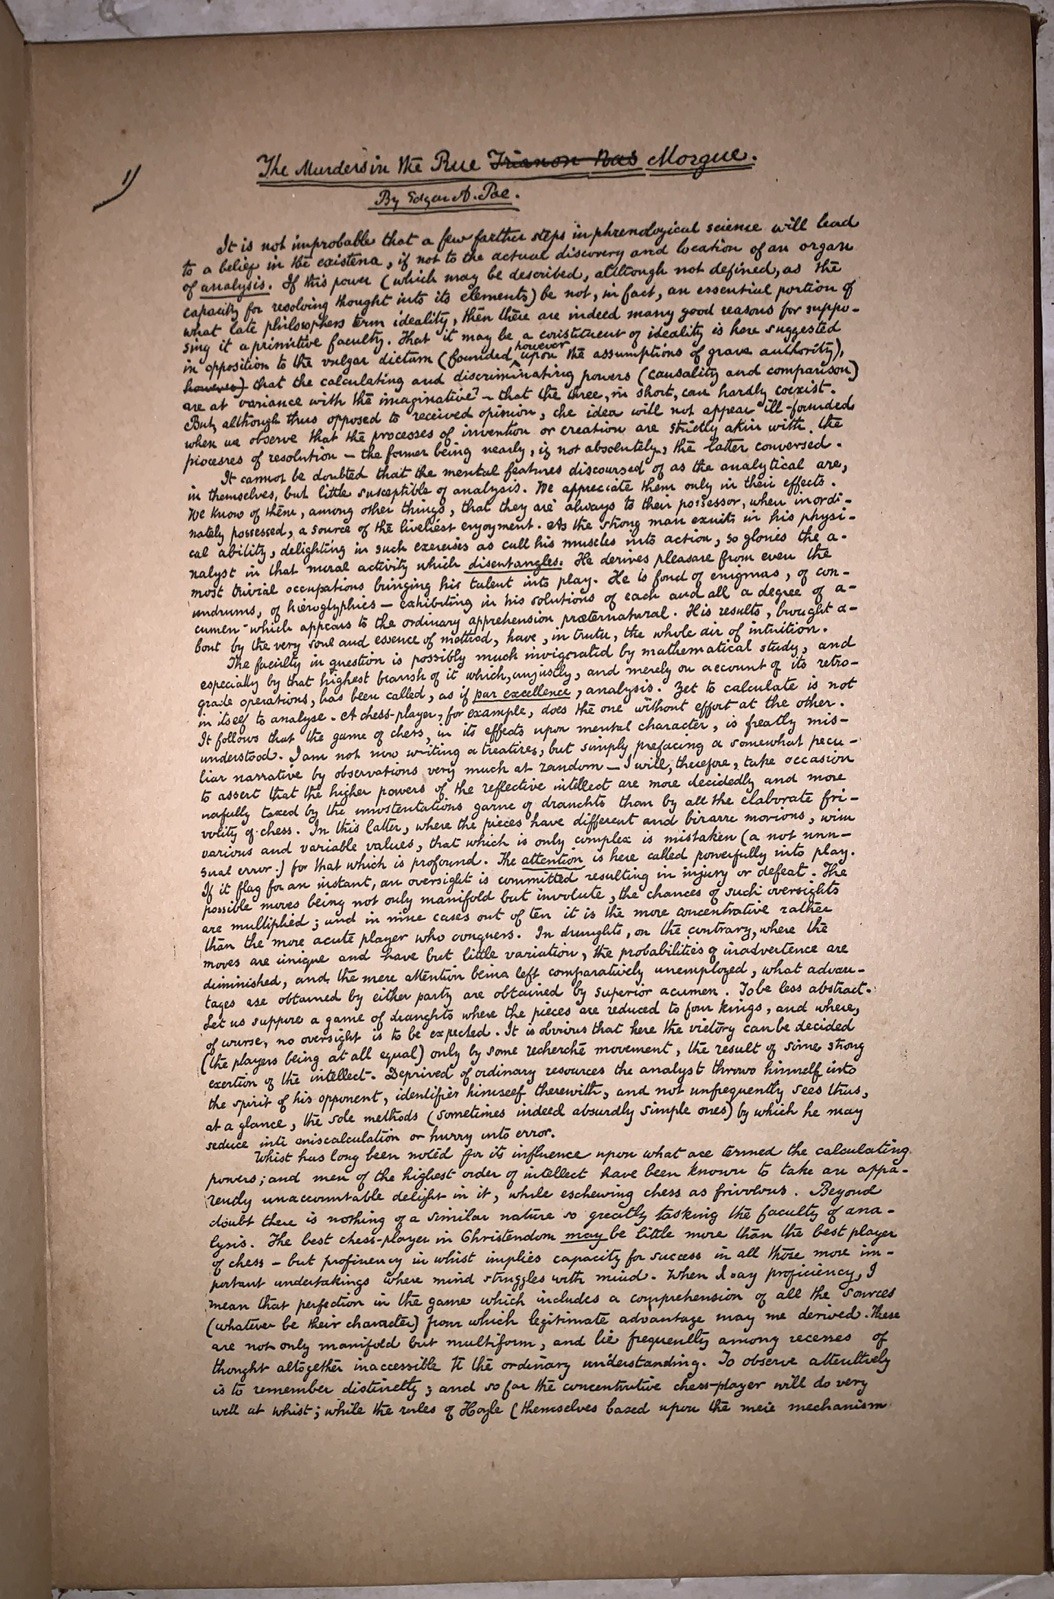 1)
The Murders in the Rue Trianon Bas Morgue.
By Edgar A. Poe.
It is not improbable that a few farther steps in phrenological science will lead
to a belief in the existence, if not to the actual discovery and location of an organ
of analysis. If this power (which may be described, although not defined, as the
capacity for resolving thought into its elements) be not, in fact, an essential portion of
what late philosophers term ideality, then there are indeed many good reasons for suppo-
sing it a primitive faculty. That it may be a constituent of ideality is here suggested
in opposition to the vulgar dictum (founded, however, upon the assumptions of grave authority),
however) that the calculating and discriminating powers (causality and comparison)
are at variance with the imaginative — that the three, in short, can hardly coexist.
But, although thus opposed to received opinion, the idea will not appear ill-founded
when we observe that the processes of invention or creation are strictly akin with the
processes of resolution — the former being nearly, if not absolutely, the latter conversed.
It cannot be doubted that the mental features discoursed of as the analytical are,
in themselves, but little susceptible of analysis. We appreciate them only in their effects.
We know of them, among other things, that they are always to their possessor, when inordi-
nately possessed, a source of the liveliest enjoyment. As the strong man exults in his physi-
cal ability, delighting in such exercises as call his muscles into action, so glories the a-
nalyst in that moral activity which disentangles. He derives pleasure from even the
most trivial occupations bringing his talent into play. He is fond of enigmas, of con-
undrums, of hieroglyphics — exhibiting in his solutions of each and all a degree of a-
cumen which appears to the ordinary apprehension præternatural. His results, brought a-
bout by the very soul and essence of method, have, in truth, the whole air of intuition.
The faculty in question is possibly much invigorated by mathematical study, and
especially by that highest branch of it which, unjustly, and merely on account of its retro-
grade operations, has been called, as if par excellence, analysis. Yet to calculate is not
in itself to analyse. A chess-player, for example, does the one without effort at the other.
It follows that the game of chess, in its effects upon mental character, is greatly mis-
understood. I am not now writing a treatise, but simply prefacing a somewhat pecu-
liar narrative by observations very much at random — I will, therefore, take occasion
to assert that the higher powers of the reflective intellect are more decidedly and more
usefully taxed by the unostentatious game of draughts than by all the elaborate fri-
volity of chess. In this latter, where the pieces have different and bizarre motions, with
various and variable values, that which is only complex is mistaken (a not unu-
sual error) for that which is profound. The attention is here called powerfully into play.
If it flag for an instant, an oversight is committed resulting in injury or defeat. The
possible moves being not only manifold but involute, the chances of such oversights
are multiplied; and in nine cases out of ten it is the more concentrative rather
than the more acute player who conquers. In draughts, on the contrary, where the
moves are unique and have but little variation, the probabilities of inadvertence are
diminished, and, the mere attention being left comparatively unemployed, what advan-
tages are obtained by either party are obtained by superior acumen. To be less abstract.
Let us suppose a game of draughts where the pieces are reduced to four kings, and where,
of course, no oversight is to be expected. It is obvious that here the victory can be decided
(the players being at all equal) only by some recherché movement, the result of some strong
exertion of the intellect. Deprived of ordinary resources the analyst throws himself into
the spirit of his opponent, identifies himself therewith, and not unfrequently sees thus,
at a glance, the sole methods (sometimes indeed absurdly simple ones) by which he may
seduce into miscalculation or hurry into error.
Whist has long been noted for its influence upon what are termed the calculating
powers; and men of the highest order of intellect have been known to take an appa-
rently unaccountable delight in it, while eschewing chess as frivolous. Beyond
doubt there is nothing of a similar nature so greatly tasking the faculty of ana-
lysis. The best chess-player in Christendom may be little more than the best player
of chess — but proficiency in whist implies capacity for success in all those more im-
portant undertakings where mind struggles with mind. When I say proficiency, I
mean that perfection in the game which includes a comprehension of all the sources
(whatever be their character) from which legitimate advantage may me derived. These
are not only manifold but multiform, and lie frequently among recesses of
thought altogether inaccessible to the ordinary understanding. To observe attentively
is to remember distinctly; and so far the concentrative chess-player will do very
well at whist; while the rules of Hoyle (themselves based upon the mere mechanism